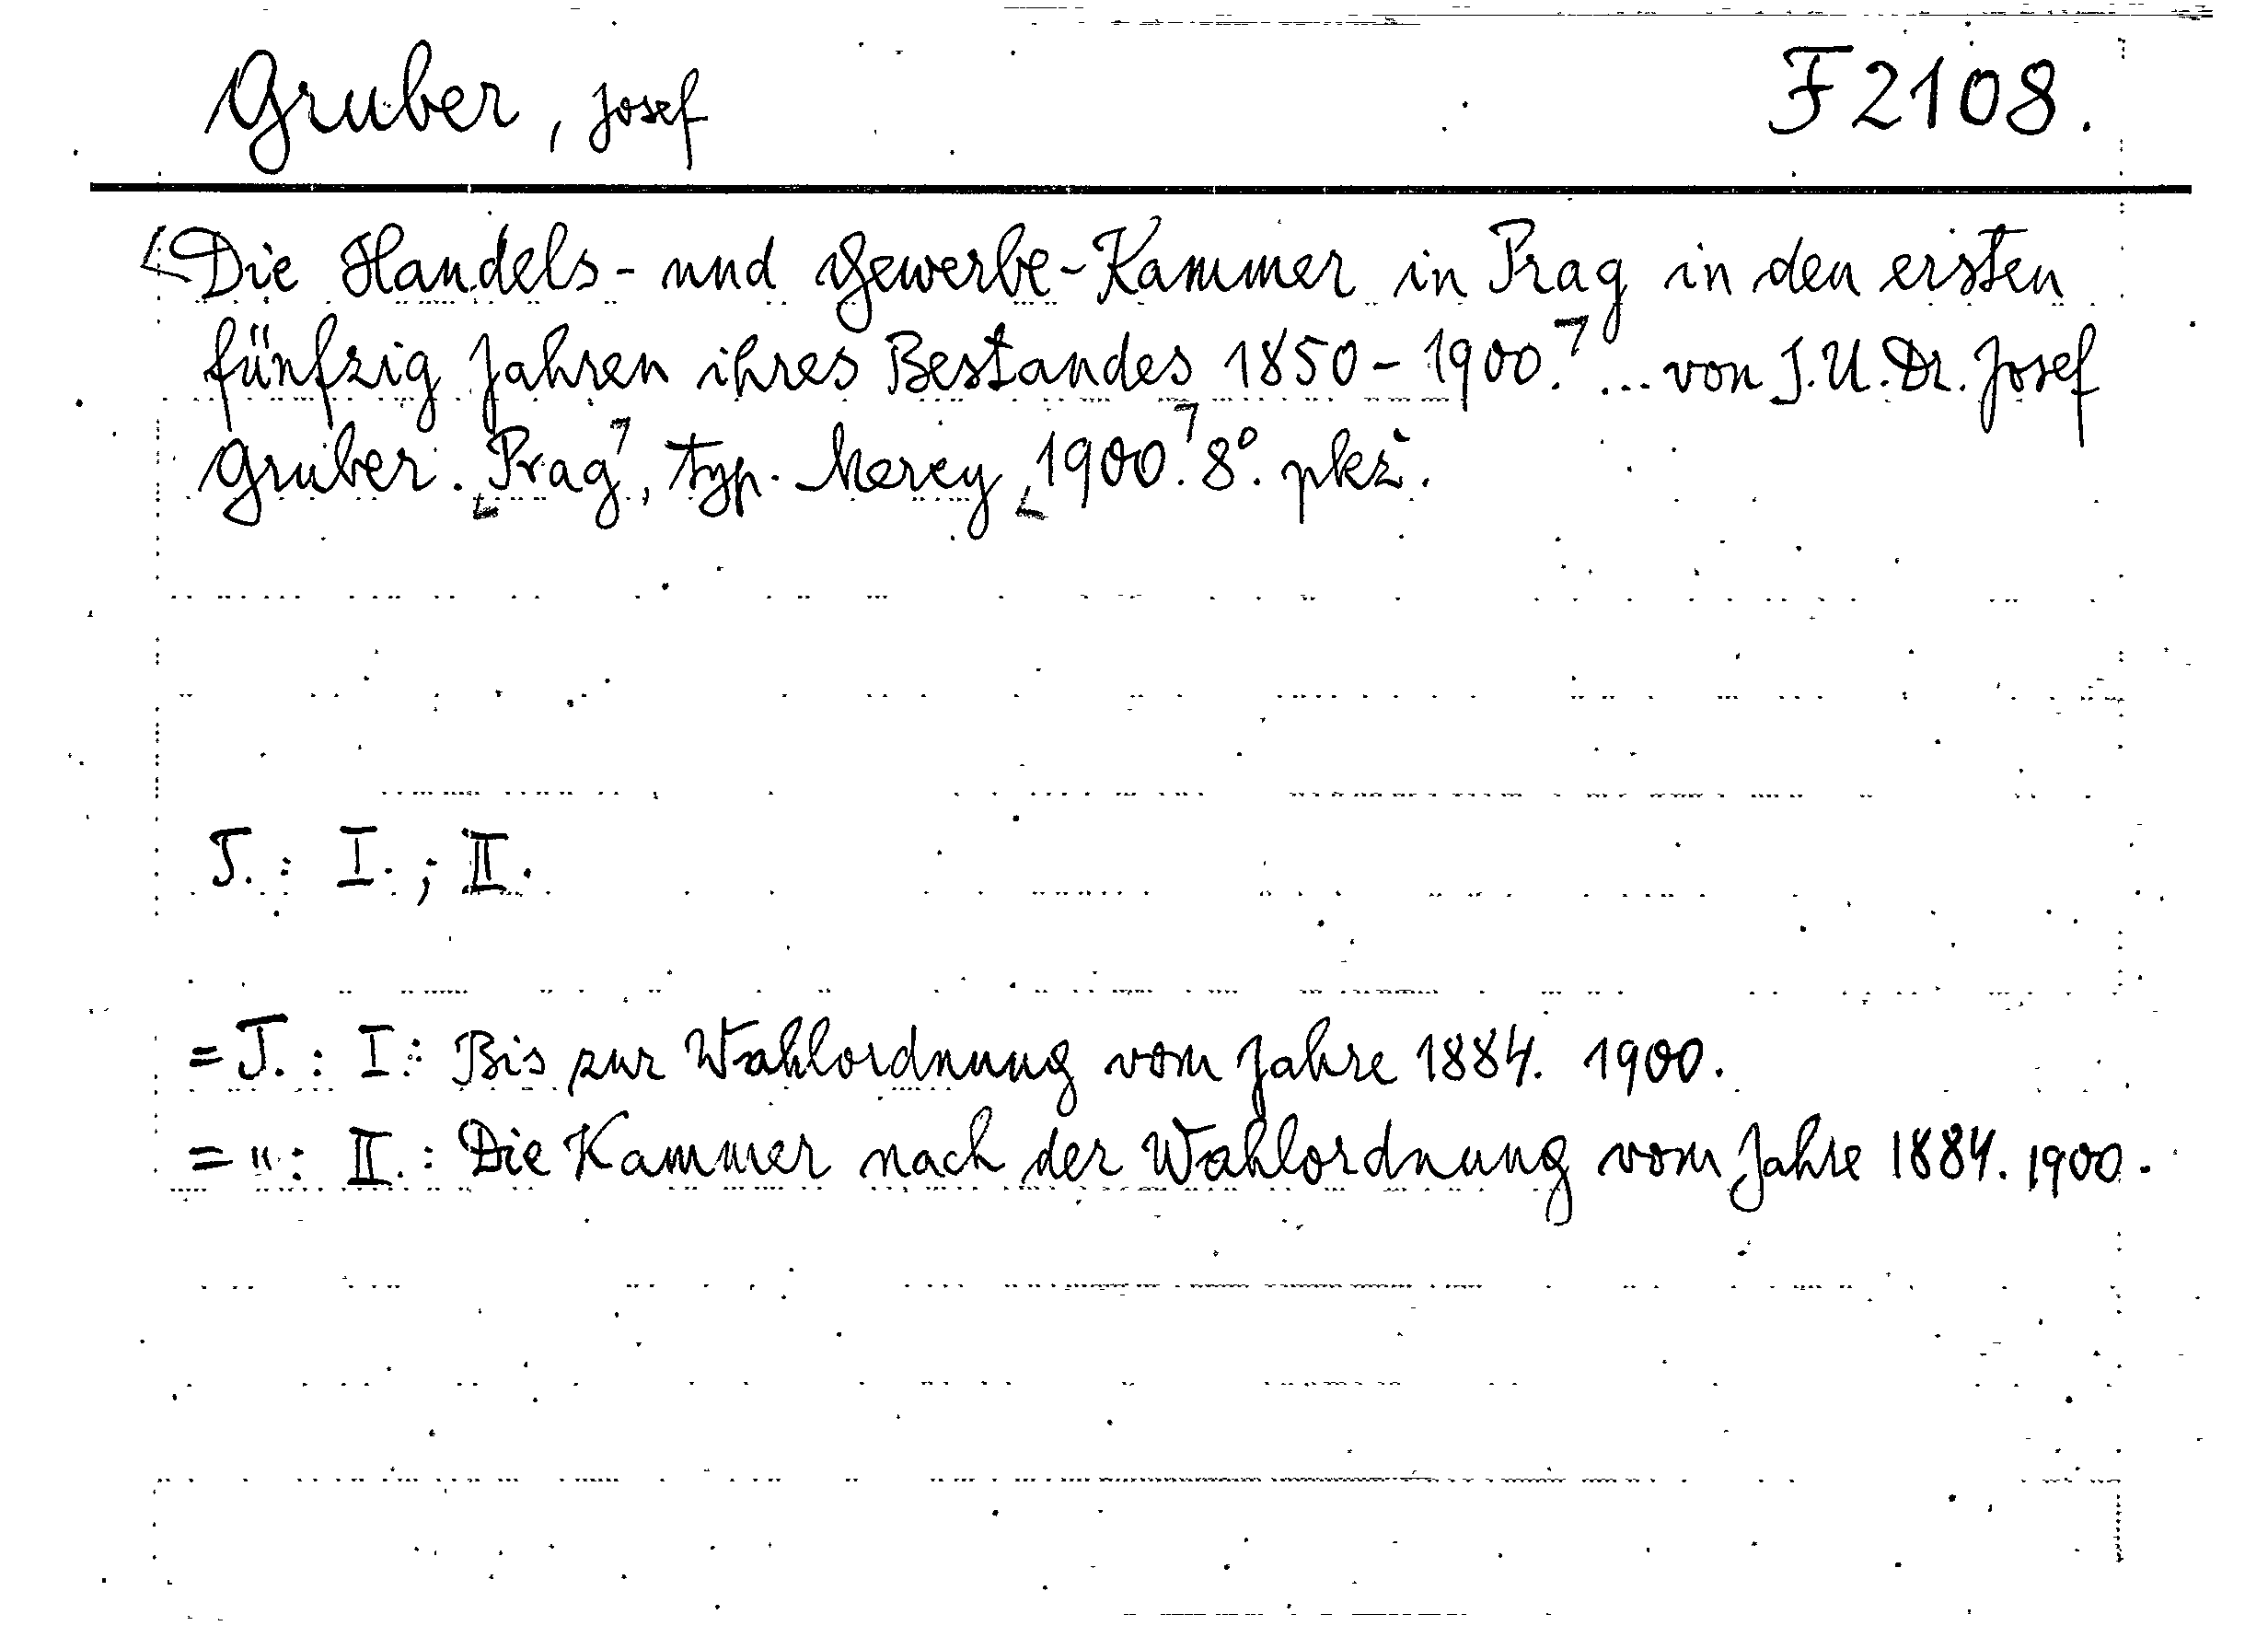 Gruber, Josef F 2108.
Die Handels- und Gewerbe-Kammer in Prag in den ersten
fünfzig Jahren ihres Bestandes 1850-1900. ... von J.U.Dr. Josef
Gruber. Prag, typ. Mercy 1900. 8°. pkž.
J.: I.; II.
=J.: I.: Bis zur Wahlordnung vom Jahre 1884. 1900.
= ": II.: Die Kammer nach der Wahlordnung vom Jahre 1884. 1900.